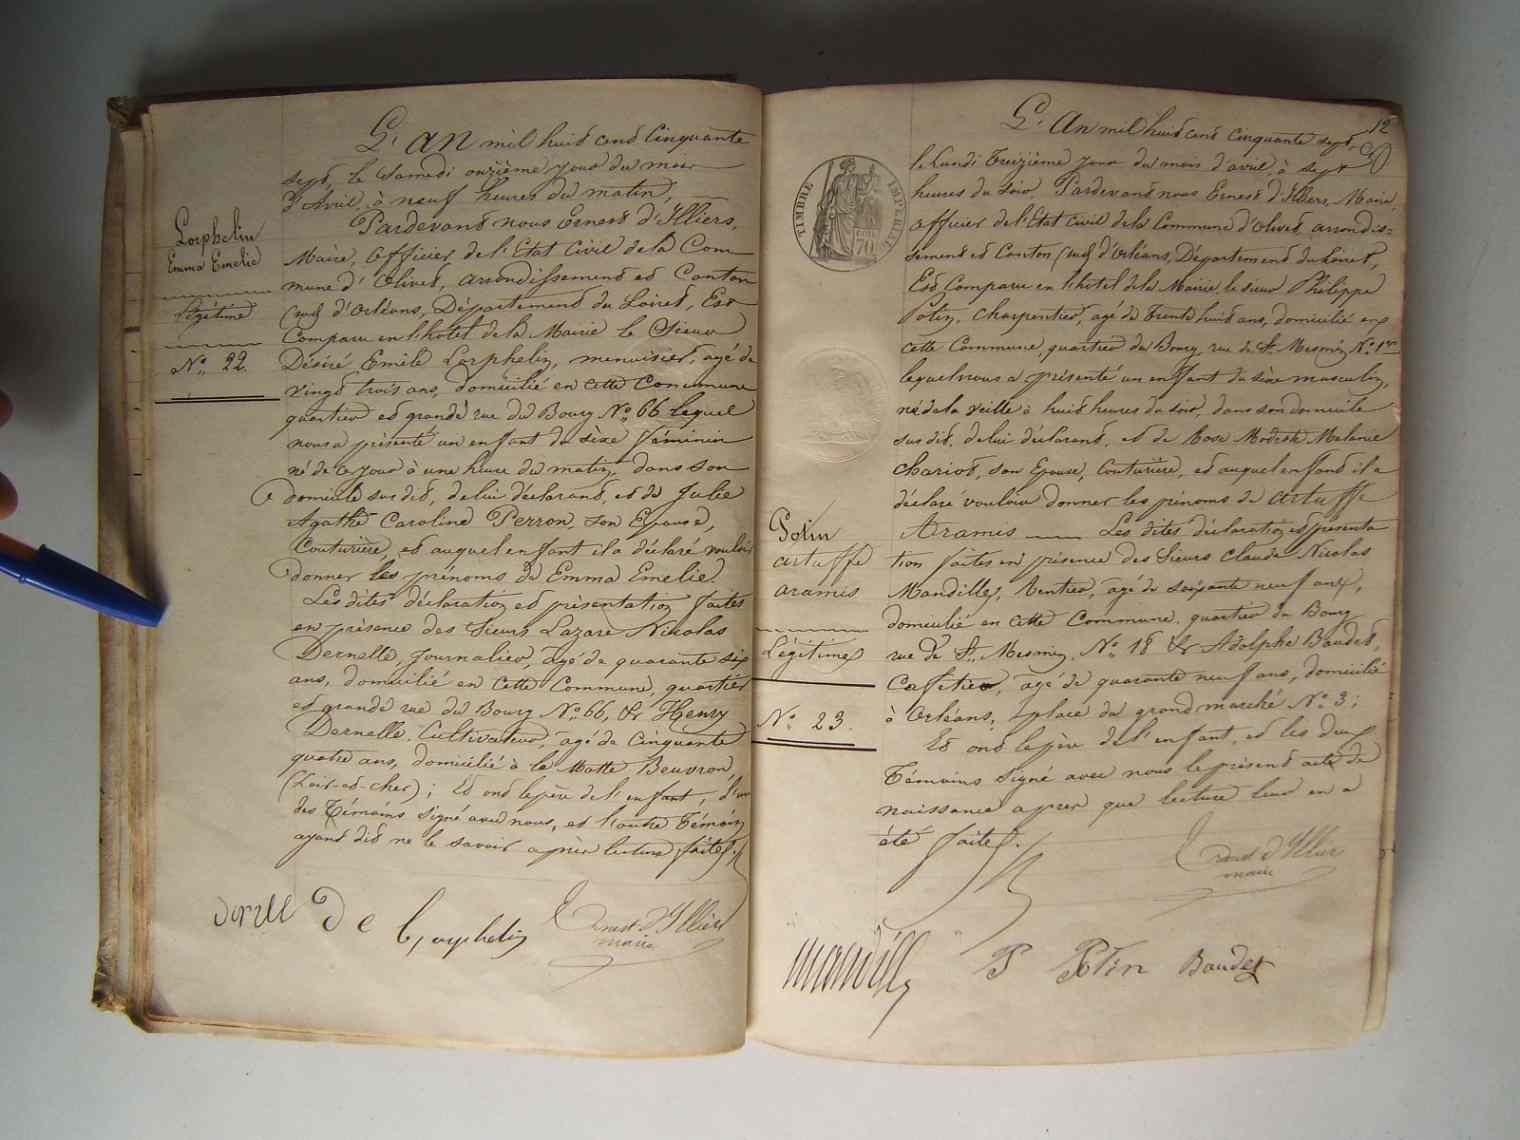 L'an mil huit cent Cinquante
sept, le Samedi onzième jour du mois
d'Avril, à neuf heures du matin,
Pardevant nous Ernest d'Illiers,
Maire, Officier de l'Etat Civil de la Com
mune d'Olivet, arrondissement et Canton
sud d'Orléans, Département du Loiret, Est
Comparu en l'hôtel de la Mairie le Sieur
Désiré Emile Lorphelin, menuisier, agé de
vingt trois ans, domicilié en cette Commune
quartier et grande rue du Bourg No 66 lequel
nous a présenté un enfant du sexe féminin
né de ce jour à une heure du matin, dans son
domicile sus dit, de lui déclarant, et de Julie
Agathe Caroline Perron, son Epouse,
Couturière, et auquel enfant il a déclaré vouloir
donner les prénoms de Emma Emelie.
Les dites déclaration et présentation faites
en présence des Sieurs Lazare Nicolas
Dernelle, journalier, agé de quarante six
ans, domicilié en cette Commune, quartier
et grande rue du Bourg No 66, & Henry
Dernelle, Cultivateur, agé de Cinquante
quatre ans, domicilié à la Motte Beuvron
(Loir-et-cher) ; Et ont le père de l'enfant, l'un
des Témoins signé avec nous, et l'autre Témoin
ayant dit ne le savoir après lecture faite.
Lorphelin
Emma Emelie
Légitime
No 22.
De Lorphelin
Ernest d'Illiers
maire
12
L'an mil huit cent cinquante sept,
le Lundi Treizième jour du mois d'avril, à sept
heures du soir Pardevant nous Ernest d'Illiers, Maire,
officier de l'Etat Civil de la Commune d'Olivet, arrondis-
sement et Canton sud d'Orléans, Département du Loiret,
Est Comparu en l'hôtel de la Mairie le sieur Philippe
Potin, Charpentier, agé de Trente huit ans, domicilié en
cette Commune, quartier du Bourg, rue de St Mesmin, No 1er
lequel nous a présenté un enfant du sexe masculin,
né de la veille à huit heures du soir, dans son domicile
sus dit, de lui déclarant, et de Rose Modeste Melanie
Chariot, son Epouse, Couturière, et auquel enfant il a
déclaré vouloir donner les prénoms de Artuffe
Aramis Les dites déclaration et présenta
tion faites en présence des Sieurs Claude Nicolas
Mandilly, Rentier, agé de soixante neuf ans,
domicilié en cette Commune, quartier du Bourg
rue de St Mesmin, No 18 & Adolphe Baudet,
Cafetier, agé de quarante neuf ans, domicilié
à Orléans, place du grand marché No 3 ;
Et ont le père de l'enfant, et les deux
Témoins signé avec nous le présent acte de
naissance après que lecture leur en a
été faite.
TIMBRE IMPERIAL
70
Potin
artuffe
aramis
Légitime
No 23.
Ernest d'Illiers
maire
mandilly P Potin Baudet